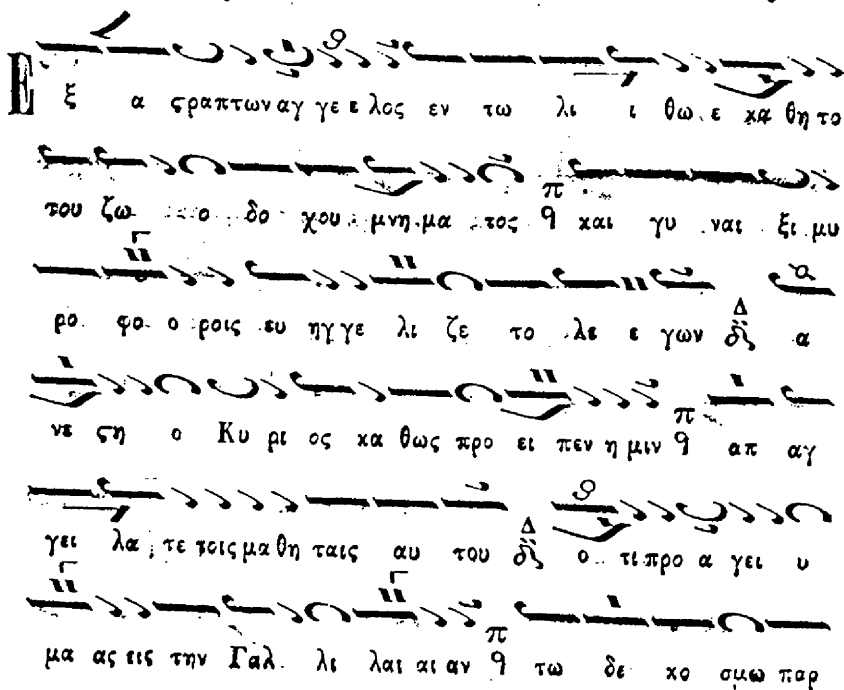 Ε ξ α ςραπτων αγ γε ε λος εν τω λι ι θω ε κα θη το
του ζω ο δο χου μνη μα τος π q και γυ ναι ξι μυ
ρο φο ο ροις ευ ηγ γε λι ζε το λε ε γων Δ α
νε ςη ο Κυ ρι ος κα θως προ ει πεν η μιν π q απ αγ
γει λα τε τοις μα θη ταις αυ του Δ ο τι προ α γει υ
μα ας εις την Γαλ λι λαι αι αν π q τω δε κο σμω παρ